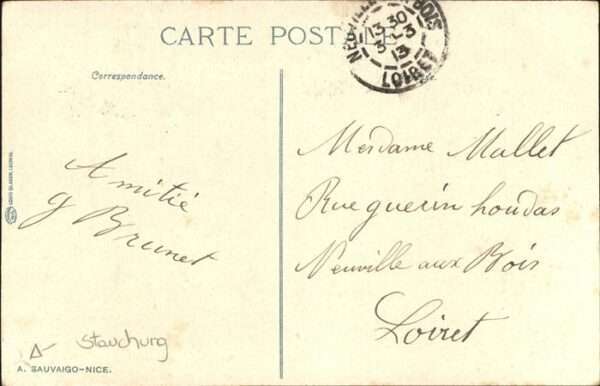 CARTE POSTALE
NEUVILLE AUX BOIS
13 30
3 - 3
13
LOIRET
Correspondance.
Amitié
g Brunet
Mesdame Mallet
Rue guerin houdas
Neuville aux Bois
Loiret
Stauchurg
A. SAUVAIGO-NICE.